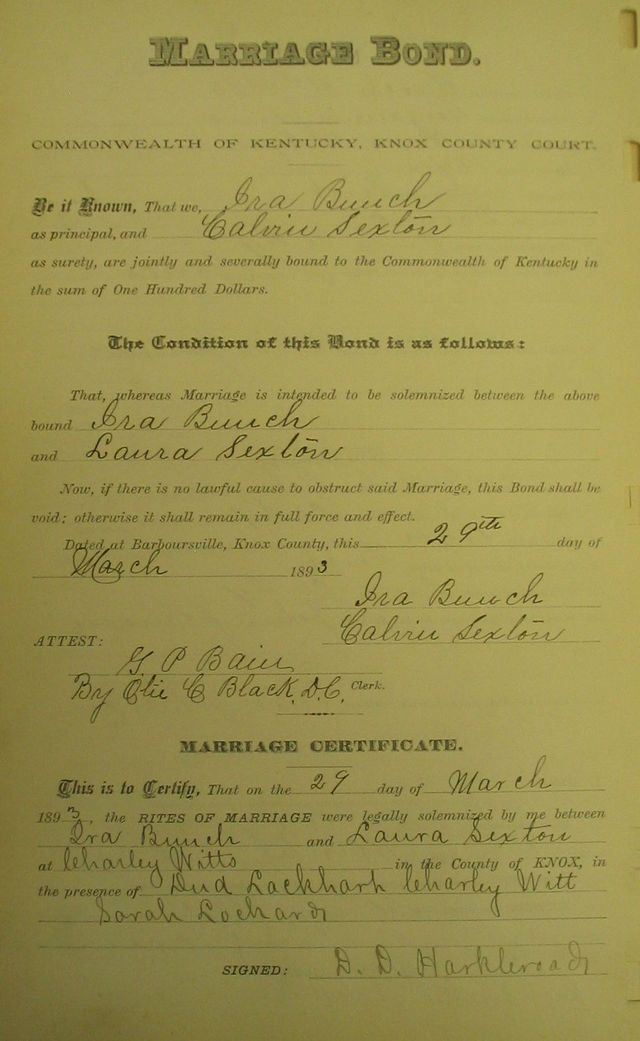 MARRIAGE BOND.
COMMONWEALTH OF KENTUCKY, KNOX COUNTY COURT.
Be it Known, That we, Ira Bunch
as principal, and Calvin Sexton
as surety, are jointly and severally bound to the Commonwealth of Kentucky in
the sum of One Hundred Dollars.
The Condition of this Bond is as follows:
That, whereas Marriage is intended to be solemnized between the above
bound Ira Bunch
and Laura Sexton
Now, if there is no lawful cause to obstruct said Marriage, this Bond shall be
void; otherwise it shall remain in full force and effect.
Dated at Barboursville, Knox County, this 29th day of
March 1893
Ira Bunch
Calvin Sexton
ATTEST:
G P Bain
By Olie C Black, D.C, Clerk.
MARRIAGE CERTIFICATE.
This is to Certify, That on the 29 day of March
1893, the RITES OF MARRIAGE were legally solemnized by me between
Ira Bunch and Laura Sexton
at Charley Witts in the County of KNOX, in
the presence of Dud Lockhart Charley Witt
Sarah Lochard
SIGNED: D. D. Harkleroads